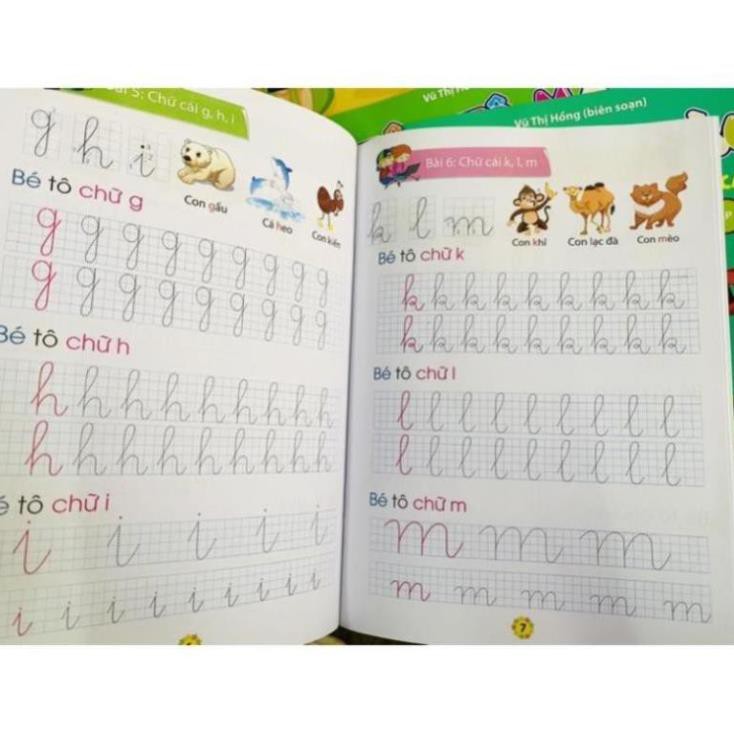 Bài 5: Chữ cái g, h, i
g h i
Con gấu
Cá heo
Con kiến
Bé tô chữ g
g g g g g g g g g
g g g g g g g g g
Bé tô chữ h
h h h h h h h h h
h h h h h h h h h
tô chữ i
i i i i i
i i i i i i i i
Vũ Thị
Vũ Thị Hồng (biên soạn)
Bài 6: Chữ cái k, l, m
k l m
Con khỉ
Con lạc đà
Con mèo
Bé tô chữ k
k k k k k k k k k
k k k k k k k k k
Bé tô chữ l
l l l l l l l l l
l l l l l l l l l
Bé tô chữ m
m m m
m m m m m
7